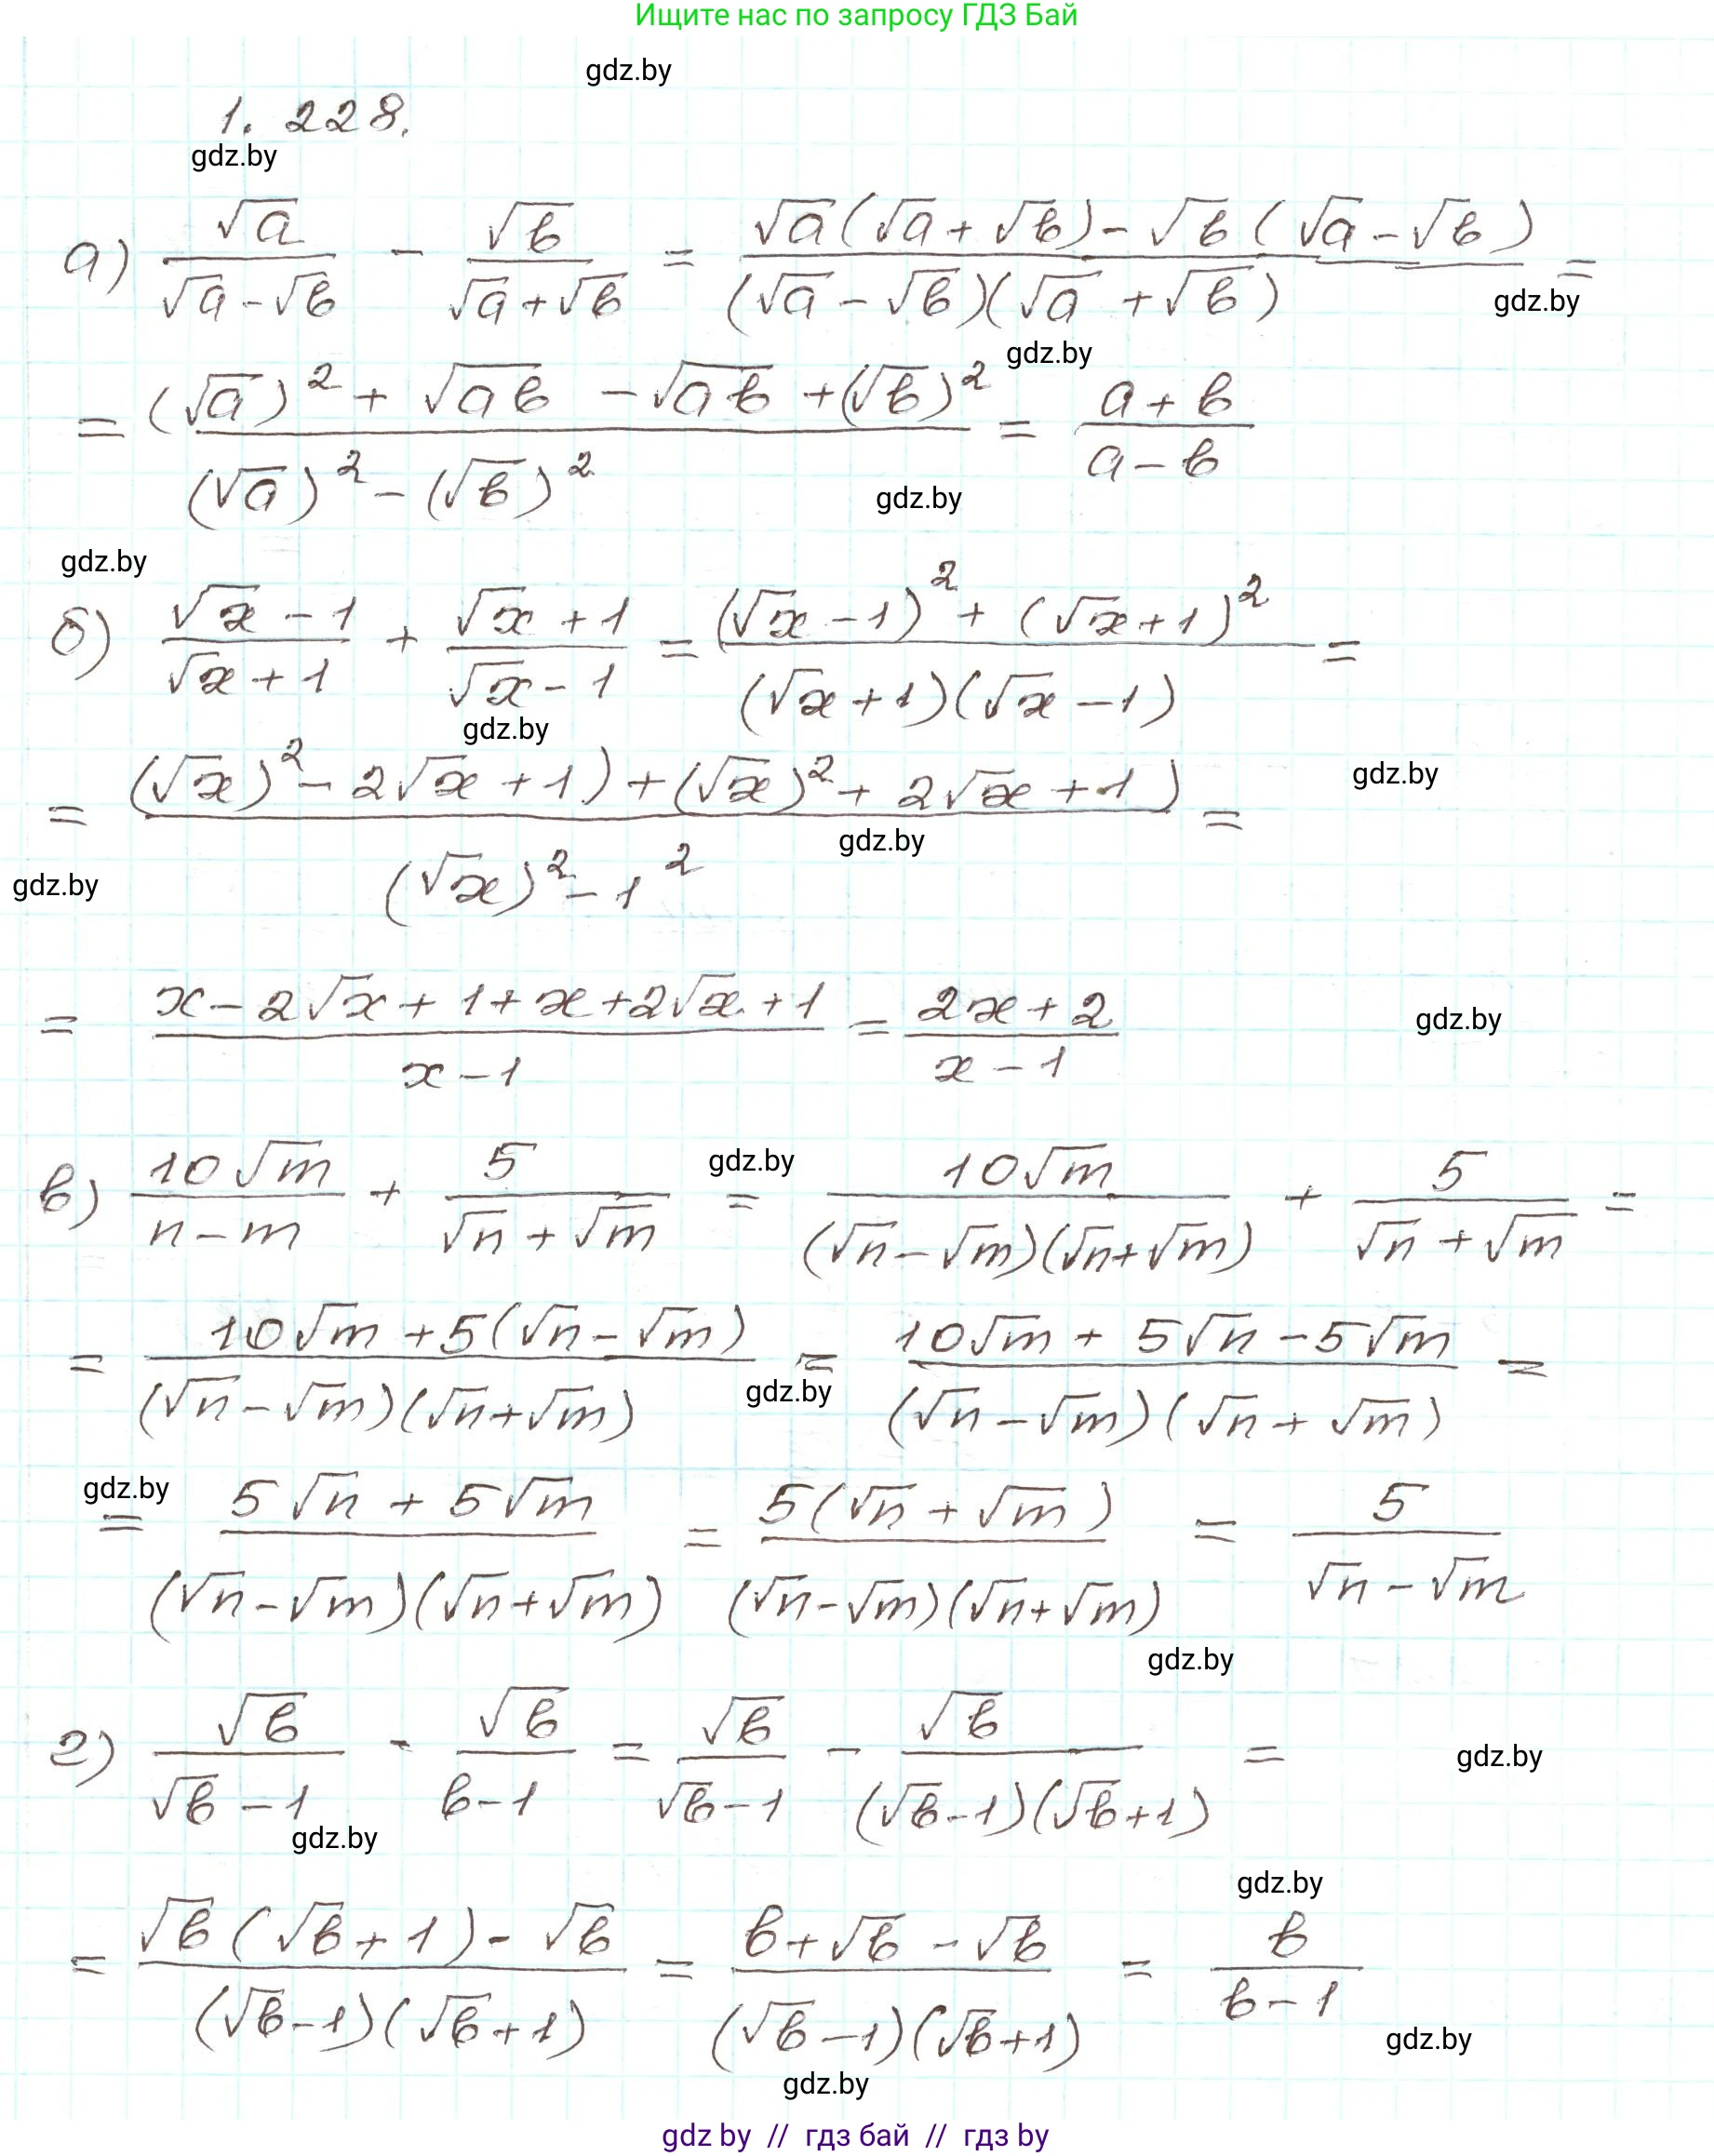 Ищите нас по запросу ГДЗ Бай
gdz.by
1. 228.
gdz.by
а) √a/(√a-√b) - √b/(√a+√b) = (√a(√a+√b)-√b(√a-√b))/((√a-√b)(√a+√b)) =
gdz.by
gdz.by
= ((√a)²+√ab-√ab+(√b)²)/((√a)²-(√b)²) = (a+b)/(a-b)
gdz.by
gdz.by
б) (√x-1)/(√x+1) + (√x+1)/(√x-1) = ((√x-1)²+(√x+1)²)/((√x+1)(√x-1)) =
gdz.by
= ((√x)²-2√x+1)+(√x)²+2√x+1)/((√x)²-1²) =
gdz.by
gdz.by
gdz.by
= (x-2√x+1+x+2√x+1)/(x-1) = (2x+2)/(x-1)
gdz.by
в) 10√m/(n-m) + 5/(√n+√m) = 10√m/((√n-√m)(√n+√m)) + 5/(√n+√m) =
gdz.by
= (10√m+5(√n-√m))/((√n-√m)(√n+√m)) = (10√m+5√n-5√m)/((√n-√m)(√n+√m)) =
gdz.by
gdz.by
= (5√n+5√m)/((√n-√m)(√n+√m)) = 5(√n+√m)/((√n-√m)(√n+√m)) = 5/(√n-√m)
gdz.by
г) √b/(√b-1) - √b/(b-1) = √b/(√b-1) - √b/((√b-1)(√b+1)) =
gdz.by
gdz.by
gdz.by
= (√b(√b+1)-√b)/((√b-1)(√b+1)) = (b+√b-√b)/((√b-1)(√b+1)) = b/(b-1)
gdz.by
gdz.by
gdz by // гдз бай // гдз by